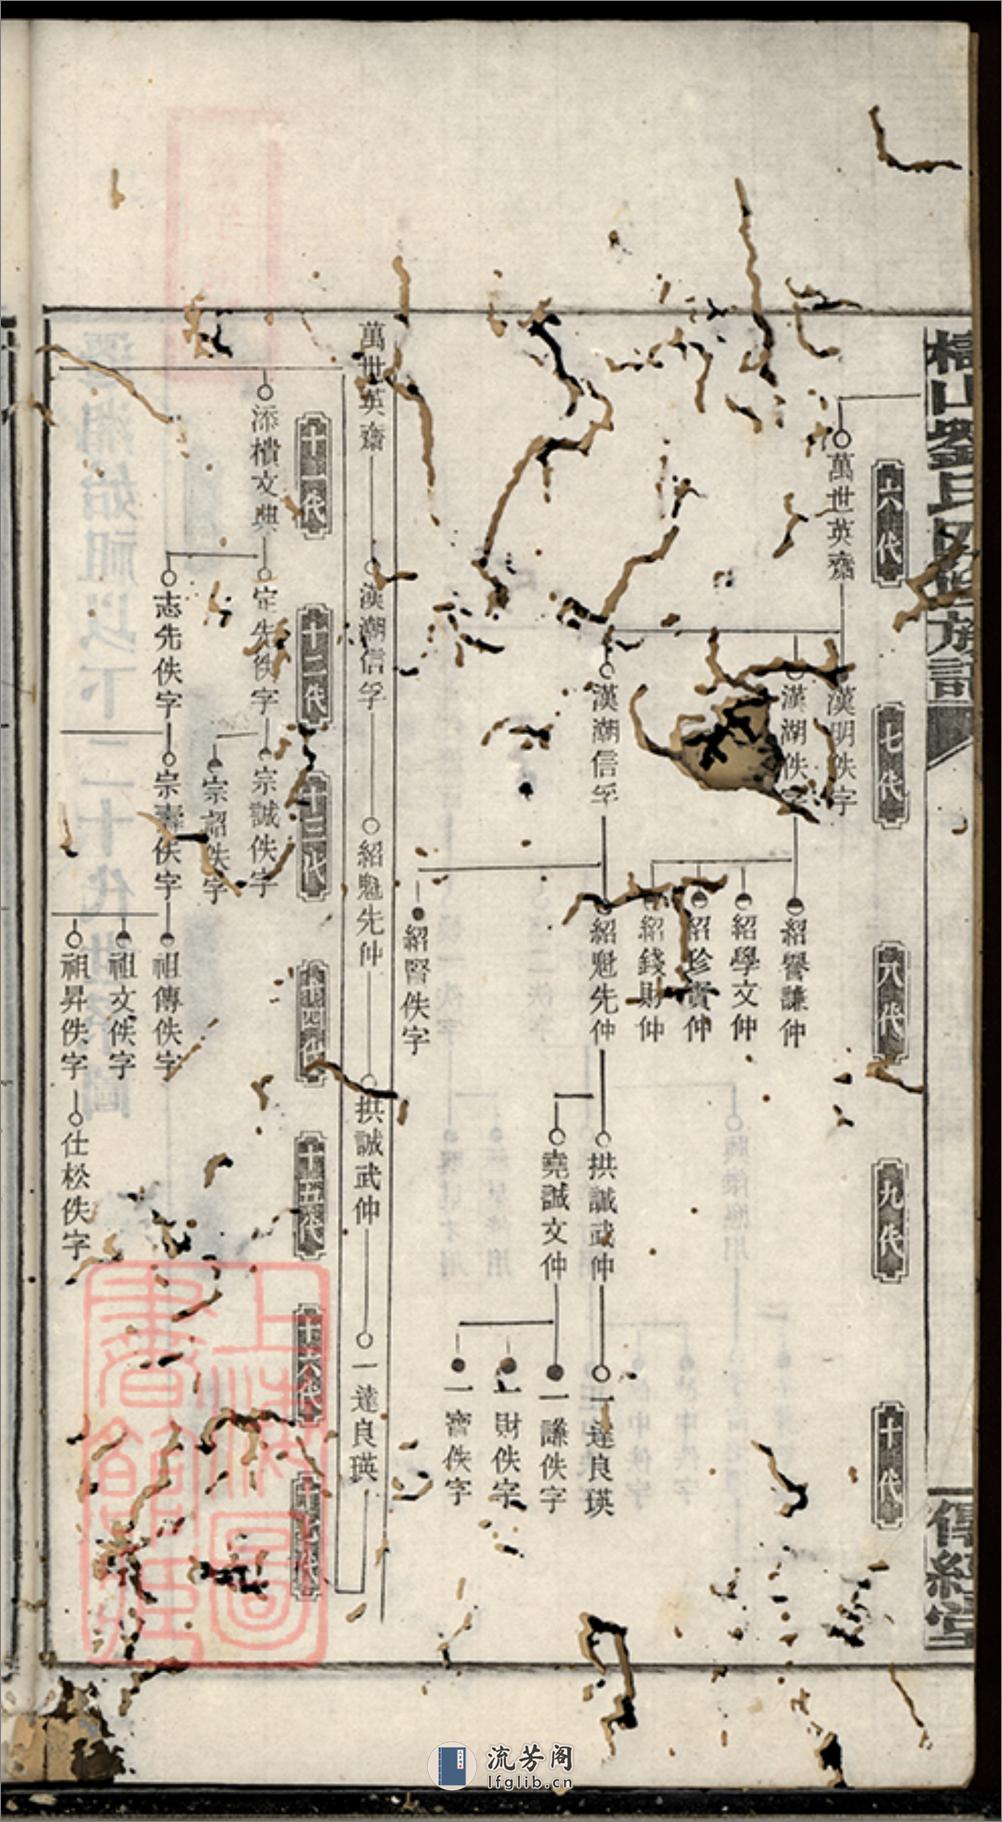 六代
七代
八代
九代
十代
萬世英齋
漢明佚字
漢湖佚字
漢潮信孚
紹譽謙仲
紹學文仲
紹珍貴仲
紹錢財仲
紹魁先仲
紹賢佚字
拱誠武仲
堯誠文仲
一達良瑛
一謙佚字
一財佚字
一寶佚字
萬世英齋
漢潮信孚
紹魁先仲
拱誠武仲
一達良瑛
十一代
十二代
十三代
十四代
十五代
十六代
十七代
添橫文典
定先佚字
志先佚字
宗誠佚字
宗韶佚字
宗壽佚字
祖傳佚字
祖文佚字
祖昇佚字
仕松佚字
上海圖書館藏
流芳阁
lfglib.cn